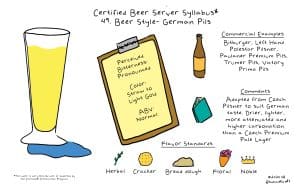 Certified Beer Server Syllabus*
49. Beer Style- German Pils
Perceived
Bitterness:
Pronounced
Color:
Straw to
Light Gold
ABV:
Normal
Commercial Examples
Bitburger, Left Hand
Polestar Pilsner,
Paulaner Premium Pils,
Trumer Pils, Victory
Prima Pils
Comments
Adapted from Czech
Pilsner to suit German
taste. Drier, lighter,
more attenuated and
higher carbonation
than a Czech Premium
Pale Lager
Flavor Standards
Herbal
Cracker
Bread dough
Floral
Noble